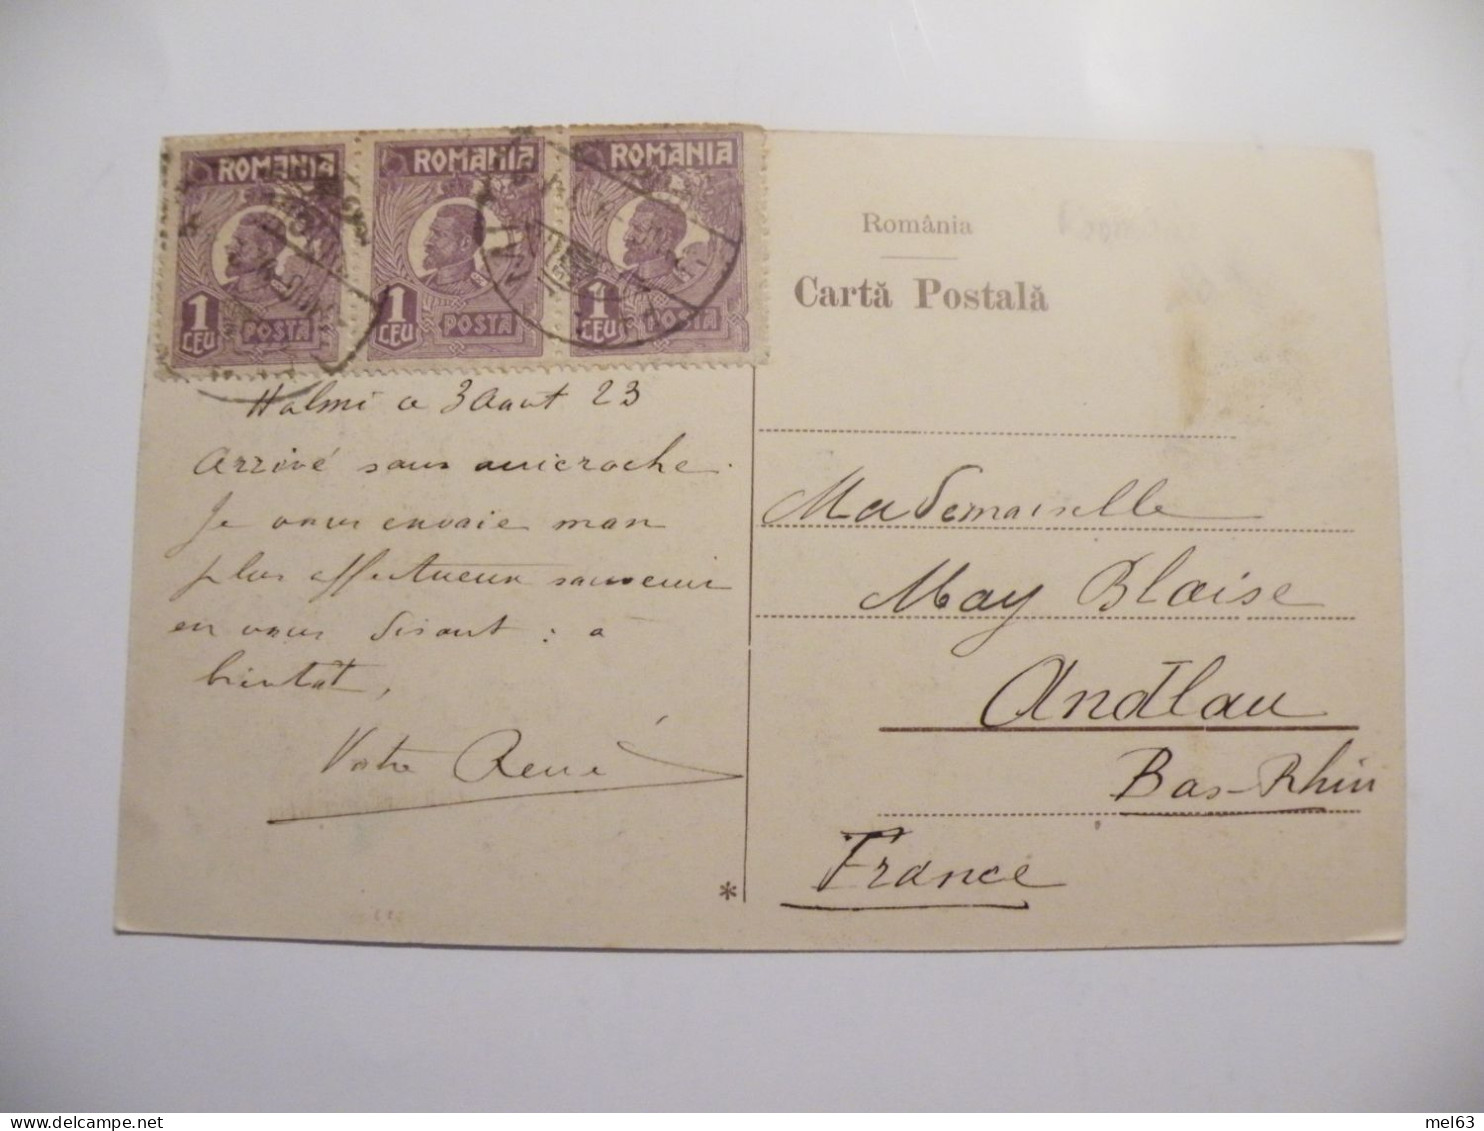 ROMANIA ROMANIA ROMANIA
1 LEU POSTA 1 LEU POSTA 1 LEU POSTA
România
Cartă Postală
Halmi ce 3 Aout 23
Arrivé sans anicroche.
Je vous envoie mon
plus affectueux souvenir
en vous disant : à
bientôt,
Votre René
Mademoiselle
May Blaise
Andlau
Bas-Rhin
France
*
mel63